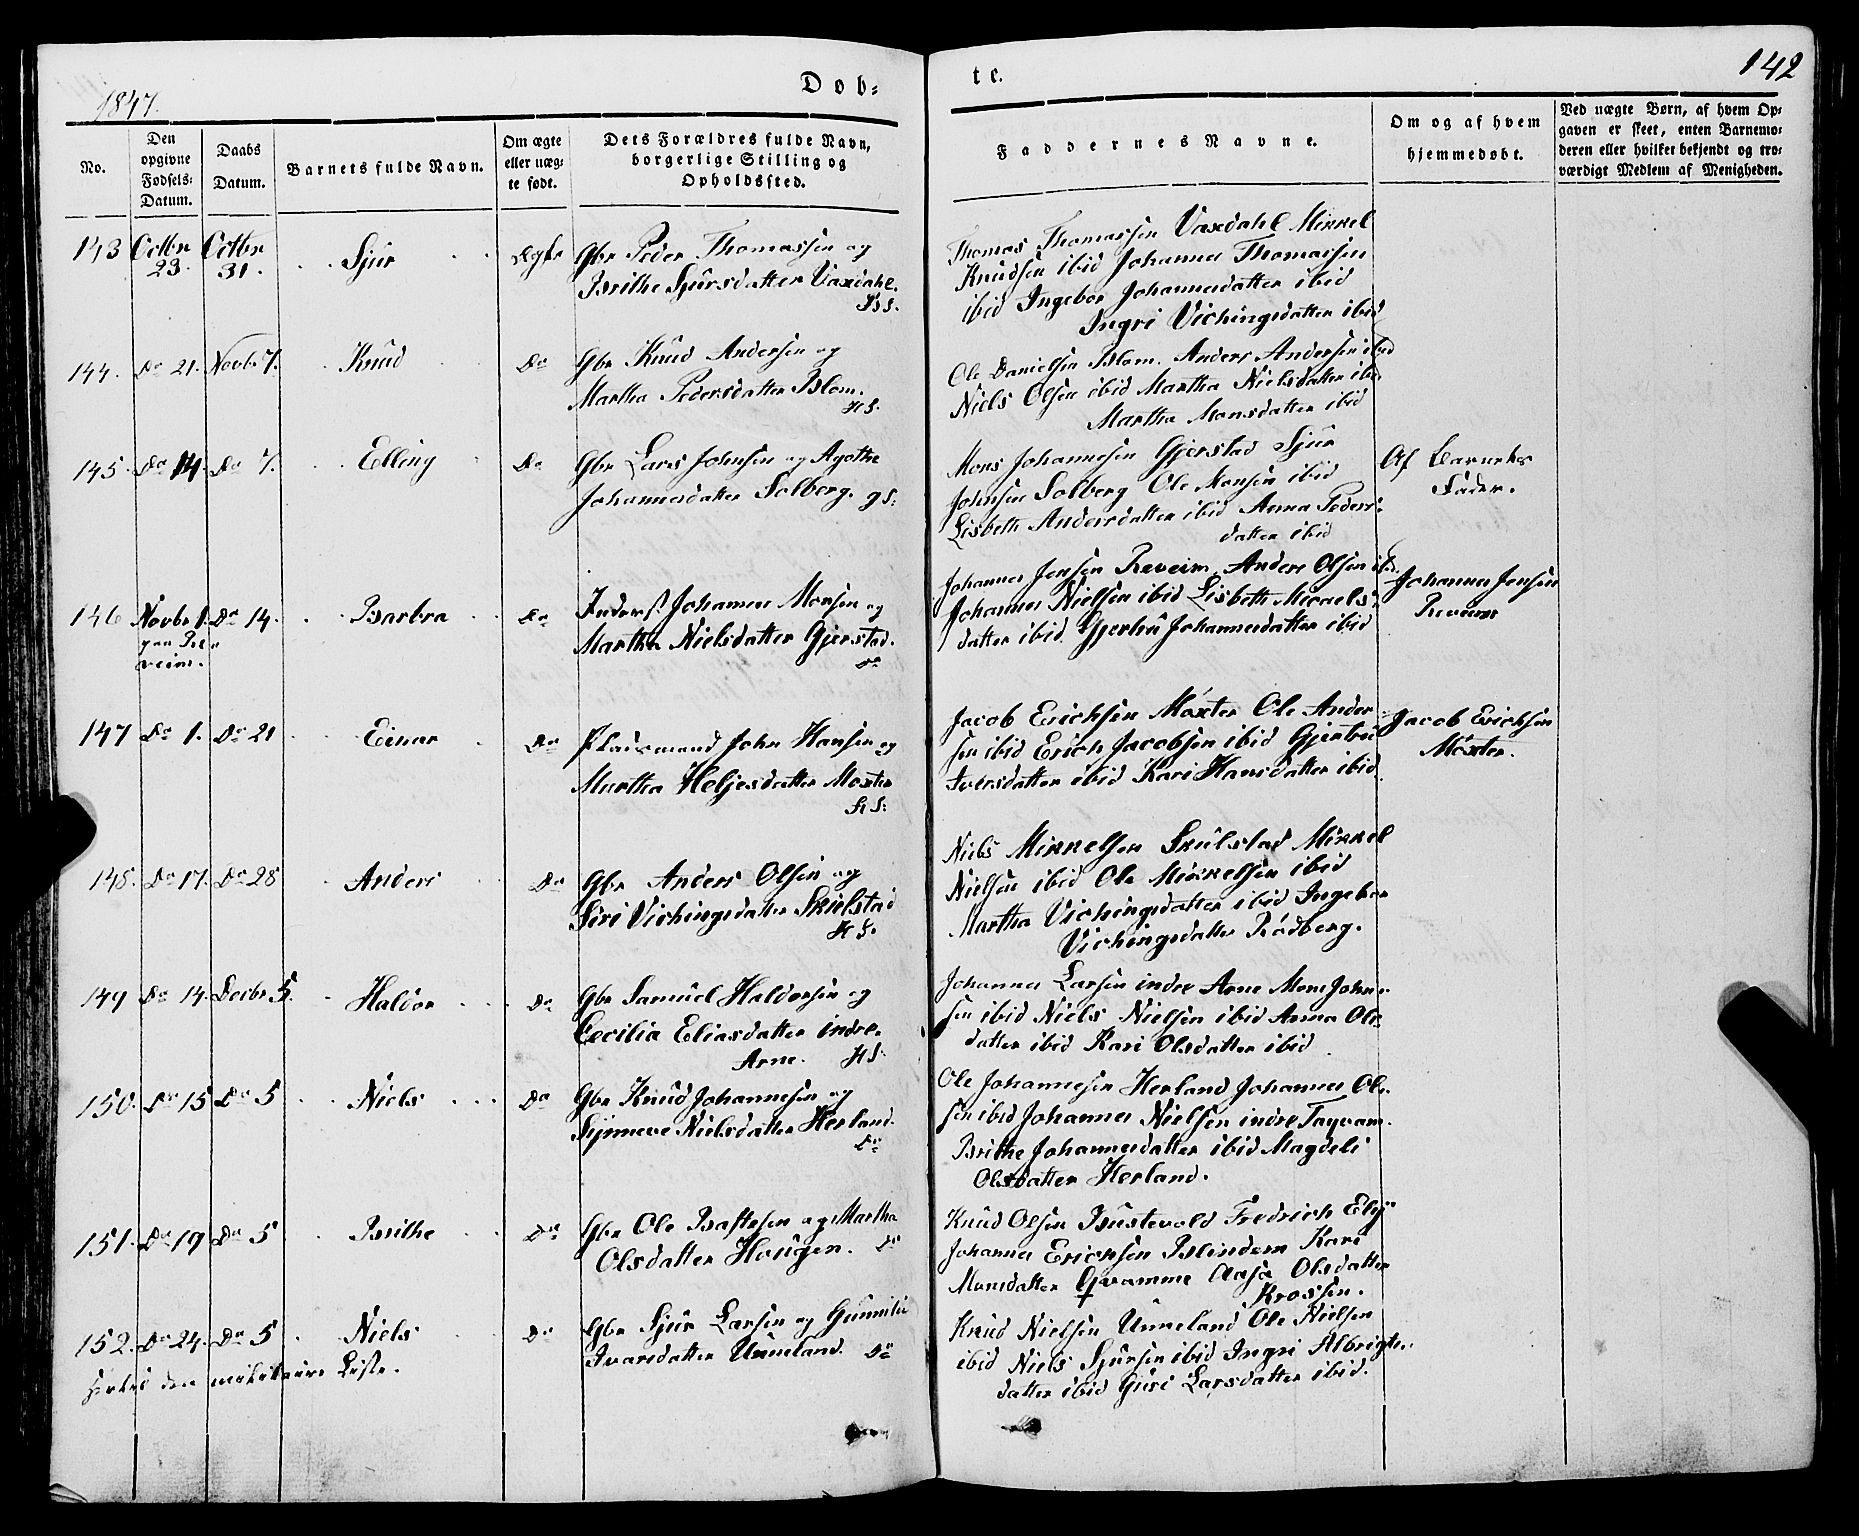 142
1847.
Døb-
te.
No.
Den opgivne Fødsels-Datum.
Daabs Datum.
Barnets fulde Navn.
Om ægte eller uæg-te født.
Dets Forældres fulde Navn, borgerlige Stilling og Opholdssted.
Faddernes Navne.
Om og af hvem hjemmedøbt.
Ved uægte Børn, af hvem Op-gaven er skeet, enten Barnemo-deren eller hvilket bekjendt og tro-værdigt Medlem af Menigheden.
143 Octbr 23. Octbr 31. Sjur Ægte Gbr Peder Thomassen og
Brithe Sjursdatter Vaxdahl.
Thomas Thomassen Vaxdahl Mikkel
Knudsen ibid Johannes Thomassen
ibid Ingebor Johannesdatter ibid
Ingri Vichingsdatter ibid
144. Do 21. Novbr 7. Knud Do Gbr Knud Andersen og
Martha Pedersdatter Blom.
HS.
Ole Danielsen Blom. Anders Andersen ibid
Niels Olsen ibid Martha Nielsdatter ibid
Martha Monsdatter ibid
145. Do 14. Do 7. Elling Do Gbr Lars Johnsen og Agothe
Johannesdatter Solberg. gS.
Mons Johannesen Gjerstad Sjur
Johnsen Solberg Ole Monsen ibid
Lisbeth Andersdatter ibid Anna Peders-
datter ibid
Af Barnets
Fader.
146 Novbr 1. Do 14. Barbra Do Inderst Johannes Monsen og
paa Re-
veim.
Martha Nielsdatter Gjerstad.
Do
Johannes Jensen Reveim. Anders Olsen ibid.
Johannes Nielsen ibid Lisbeth Micaels-
datter ibid Gjertru Johannesdatter ibid
Johannes Jensen
Reveim
147 Do 1. Do 21 Einar Do Pladsmand John Hansen og
Martha Heljesdatter Moxter
HS.
Jacob Erichsen Móxter Ole Ander-
sen ibid Erich Jacobsen ibid Gjertru
Iversdatter ibid Kari Hansdatter ibid
Jacob Erichsen
Móxter.
148. Do 17. Do 28 Anders Do Gbr Anders Olsen og
Siri Vichingsdatter Skulstad
HS.
Niels Mikkelsen Skulstad Mikkel
Nielsen ibid Ole Mikkelsen ibid
Martha Vichingsdatter ibid Ingebor
Vichingsdatter Rødberg.
149 Do 14. Decbr 5. Haldor Do Gbr Samuel Haldorsen og
Cecilia Eliasdatter indre
Arne. HS.
Johannes Larsen indre Arne Mons John-
sen ibid Niels Nielsen ibid Anna Ols-
datter ibid Kari Olsdatter ibid
150. Do 15 Do 5 Niels Do Gbr Knud Johannesen og
Synneve Nielsdatter Herland.
Do
Ole Johannesen Herland Johannes Ol-
sen ibid Johannes Nielsen indre
Brithe Johannesdatter ibid Magdeli
Olsdatter Herland.
151. Do 19 Do 5 Brithe Do Gbr Ole og Martha
Olsdatter Hougen. Do
Knud Olsen Fredrich
Johannes Erichsen Blindem Kari
Monsdatter Qvamme Olsdatter
Krossen.
152. Do 24. Do 5 Niels Do Gbr Sjur Larsen og Gunnilde
Ivarsdatter Unneland. Do
Knud Nielsen Unneland Ole Nielsen
ibid Niels Sjursen ibid Ingri Albrigts-
datter ibid Guri Larsdatter ibid.
den militaire Liste.